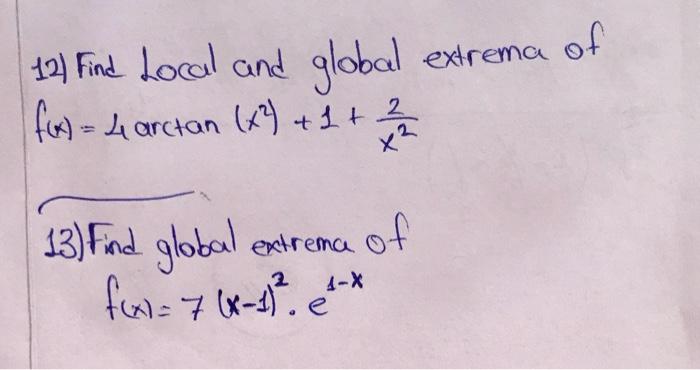 12) Find Local and global extrema of
f(x) = 4 arctan (x²) + 1 + 2/x²
13) Find global extrema of
f(x) = 7 (x-1)² . e^(1-x)